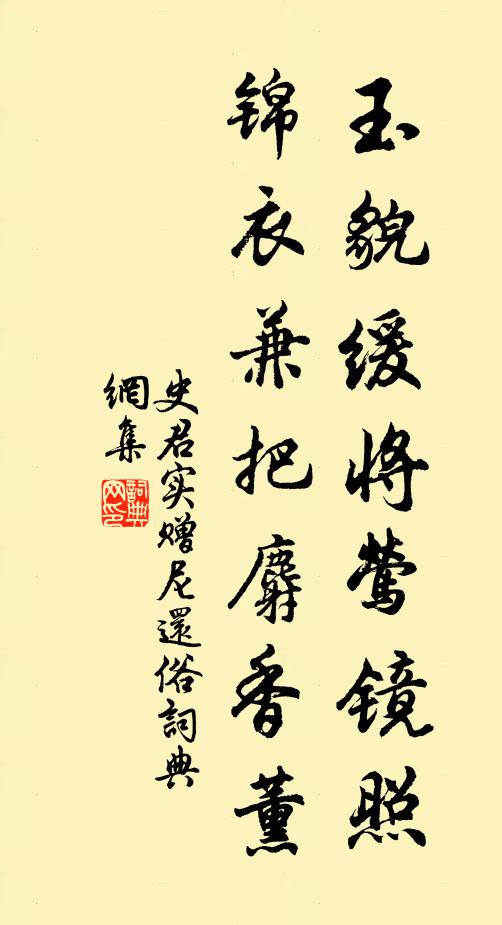 玉貌缓将莺镜照
锦衣兼把麝香薰
史君实赠尼還俗詞典
網集
詞典
网印